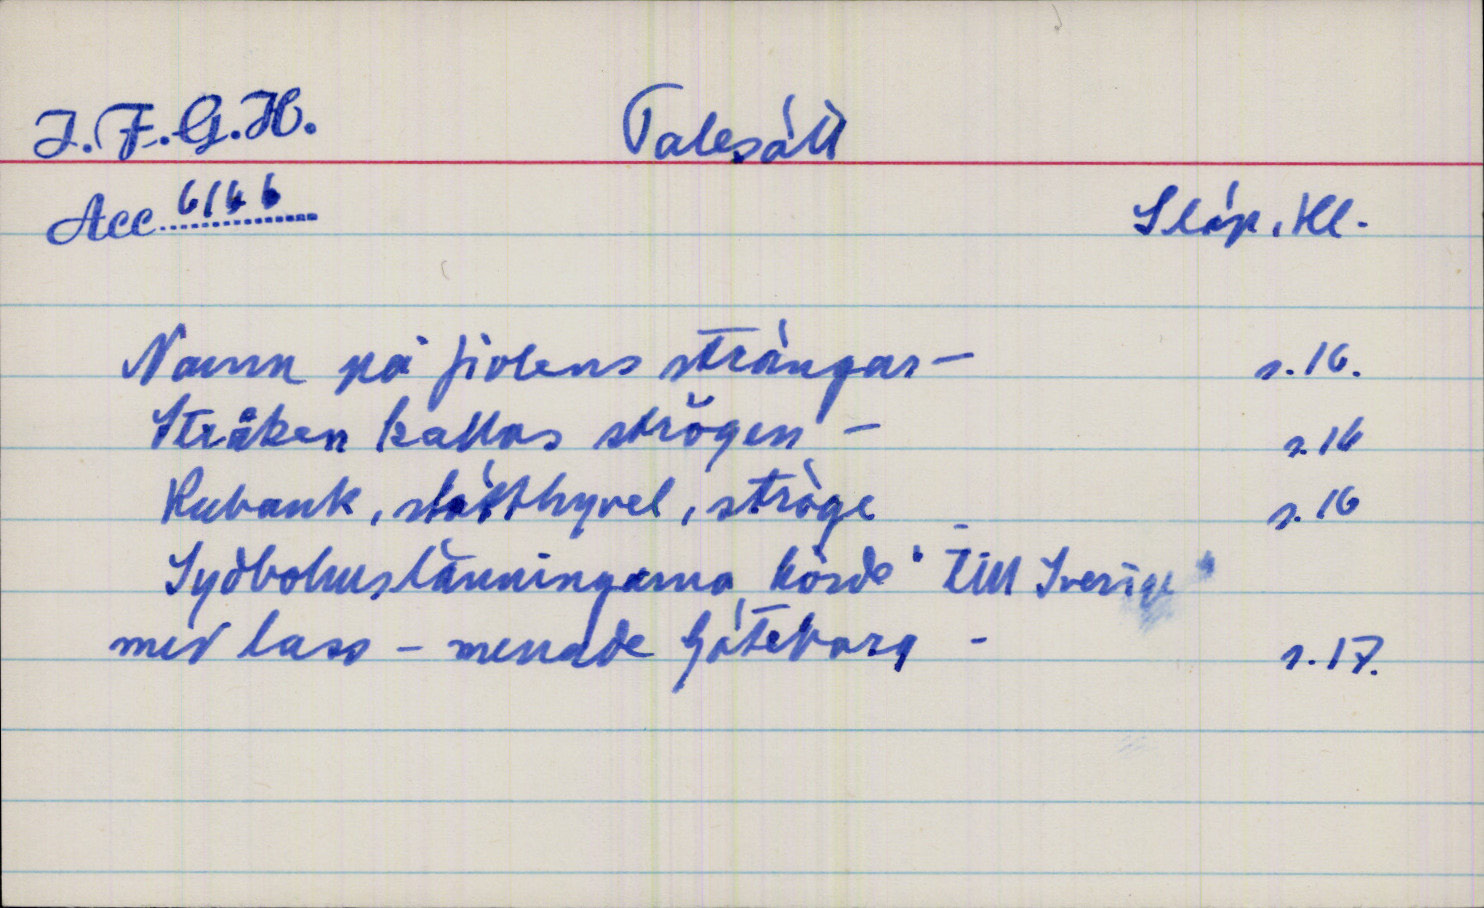 I.F.G.H. Talesätt
Acc 6166 Släp, Hl.
Namn på fiolens strängar – s.16.
Stråken kallas strögen – s.16
Rubank, slätthyvel, ströge – s.16
Sydbohuslänningarna körde "till Sverige"
med lass – menade Göteborg – s.17.